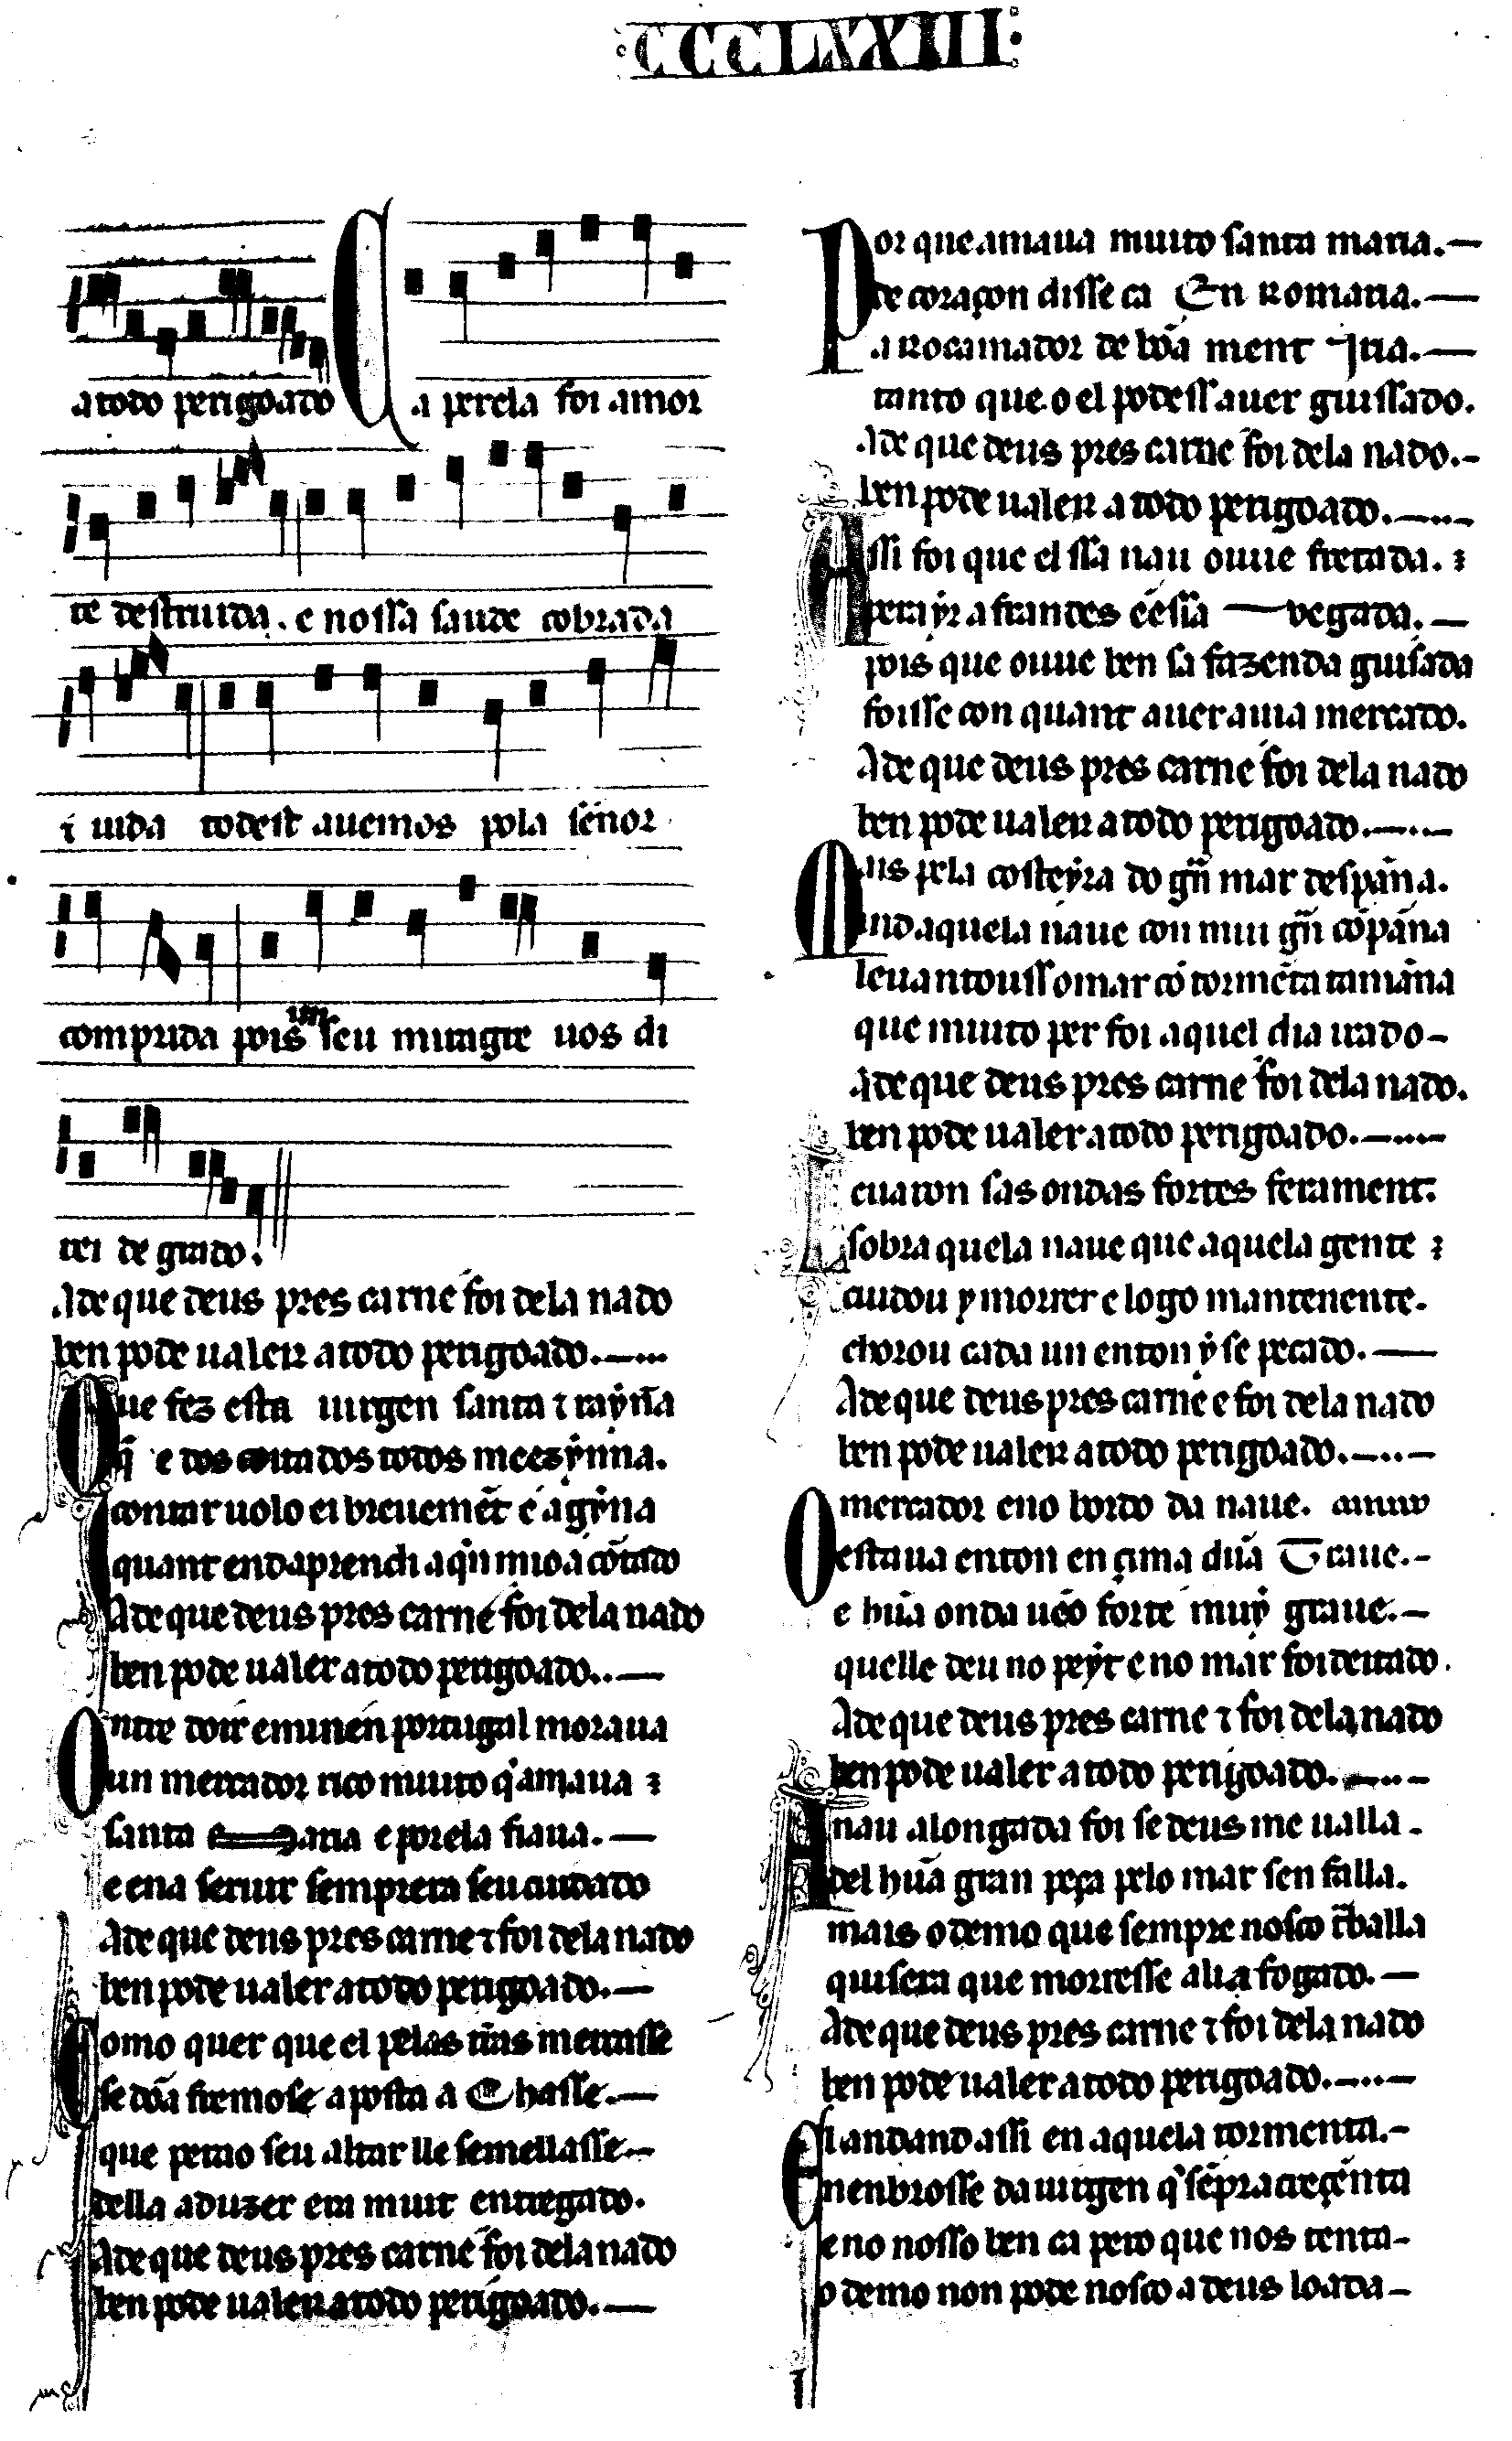 CCCLXXIII
a todo perigoado Ca perela foi a mor
te destruida. e nossa saude cobrada
⁊ uida todest auemos pola sennor
comprida pois un seu miragre uos di
rei de grado.
A de que deus pres carne e foi dela nado
ben pode ualer a todo perigoado.
Que fez esta uirgen santa ⁊ raỹna
q̃ e dos coitados todos meezỹnna.
contar uolo ei breuemẽt e agỹna
quant end aprendi a q̇n mio á cõtado
A de que deus pres carne e foi dela nado
ben pode ualer a todo perigoado.
Ontre doir e min en portugal moraua
un mercador rico muito q̇ amaua
santa Maria e por ela fiaua.
e ena seruir sempr era seu cuidado
A de que deus pres carne ⁊ foi dela nado
ben pode ualer a todo perigoado.
Como quer que el pelas t̃ras mercasse
se dõa fremos e aposta a Chasse.
que pera o seu altar lle semellasse
della aduzer era muit entregado.
A de que deus pres carne e foi dela nado
ben pode ualer a todo perigoado.
Por que amaua muito santa maria.
de coraçon disse ca En Romaria.
a Rocamador de bõa ment Iria.
tanto que o el podess auer guissado.
A de que deus pres carne e foi dela nado.
ben pode ualer a todo perigoado.
Assi foi que el ssa nau ouue fretada.
pera ỹr a frandes e ẽ sũa vegada.
pois que ouue ben sa fazenda guisada
foisse con quant auer auia mercado.
A de que deus pres carne e foi dela nado
ben pode ualer a todo perigoado.
Mais pela costeỹra do gr̃n mar despãna.
Ind aquela naue con mui gr̃n cõpãna
leuantouss o mar cõ tormẽta tamãna
que muito per foi aquel dia irado
A de que deus pres carne e foi dela nado.
ben pode ualer a todo perigoado.
Leuaron sas ondas fortes feramente.
sobr aquela naue que aquela gente
cuidou y morrer e logo mantenente.
chorou cada un enton ỹ se pecado.
A de que deus pres carne e foi dela nado
ben pode ualer a todo perigoado.
O mercador eno bordo da naue.
estaua enton en çima dũa Traue.
e hũa onda uẽo forte muỹ graue.
quelle deu no peỹt e no mar foi deitado.
A de que deus pres carne ⁊ foi dela nado
ben pode ualer a todo perigoado.
A nau alongada foi se deus me ualla.
del hũa gran peça pelo mar sen falla.
mais o demo que sempre nosco t̃balla
quisera que morresse ali afogado.
A de que deus pres carne ⁊ foi dela nado
ben pode ualer a todo perigoado.
El andand assi en aquela tormenta.
nenbrosse da uirgen q̇ sẽpr acreçẽnta
eno nosso ben ca pero que nos tenta
o demo non pode nosco a deus loada